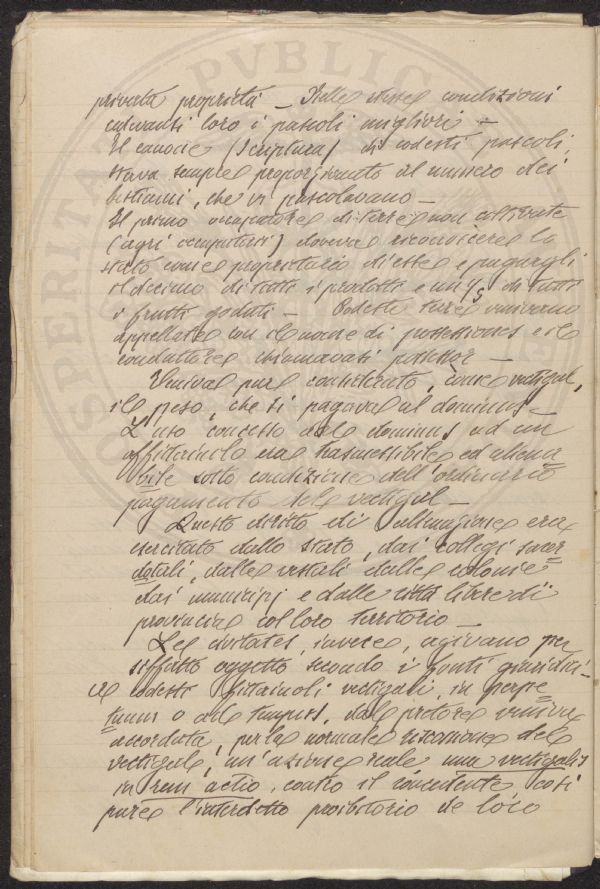 privata proprietà — Nelle stesse condizioni
loro i pascoli migliori —
Il canone (Scriptura) di codesti pascoli,
stava sempre proporzionato al numero dei
bestiami, che vi pascolavano —
Il primo occupatore di terre non coltivate
(agri occupatorii) doveva riconoscere lo
stato come proprietario d'esse e pagargli
il decimo di tutti i prodotti e un 5 di tutti
i frutti goduti — Codeste terre venivano
appellate con il nome di possessiones e il
conduttore chiamavasi possessor —
Veniva pure considerato, come vectigal,
il peso, che si pagava al dominus —
L'uso concesso dal dominus ad un
affittaiuolo era trasmessibile ed aliena
bile sotto condizione dell'ordinario
pagamento del vectigal —
Questo diritto di era
esercitato dallo stato, dai collegi sacer
dotali, dalle vestali dalle colonie
dai municipj e dalle città libere di
provincia col loro territorio —
Le civitates, invece, agivano per
siffatto oggetto secondo i giuridici —
A codesti fittaiuoli vectigali, in perpe
tuum o ad tempus, dal pretore veniva
accordata, per la normale del
vectigale, un'azione reale una vectigalis
in rem actio, contro il concedente, così
pure l'interdetto proibitorio de loco